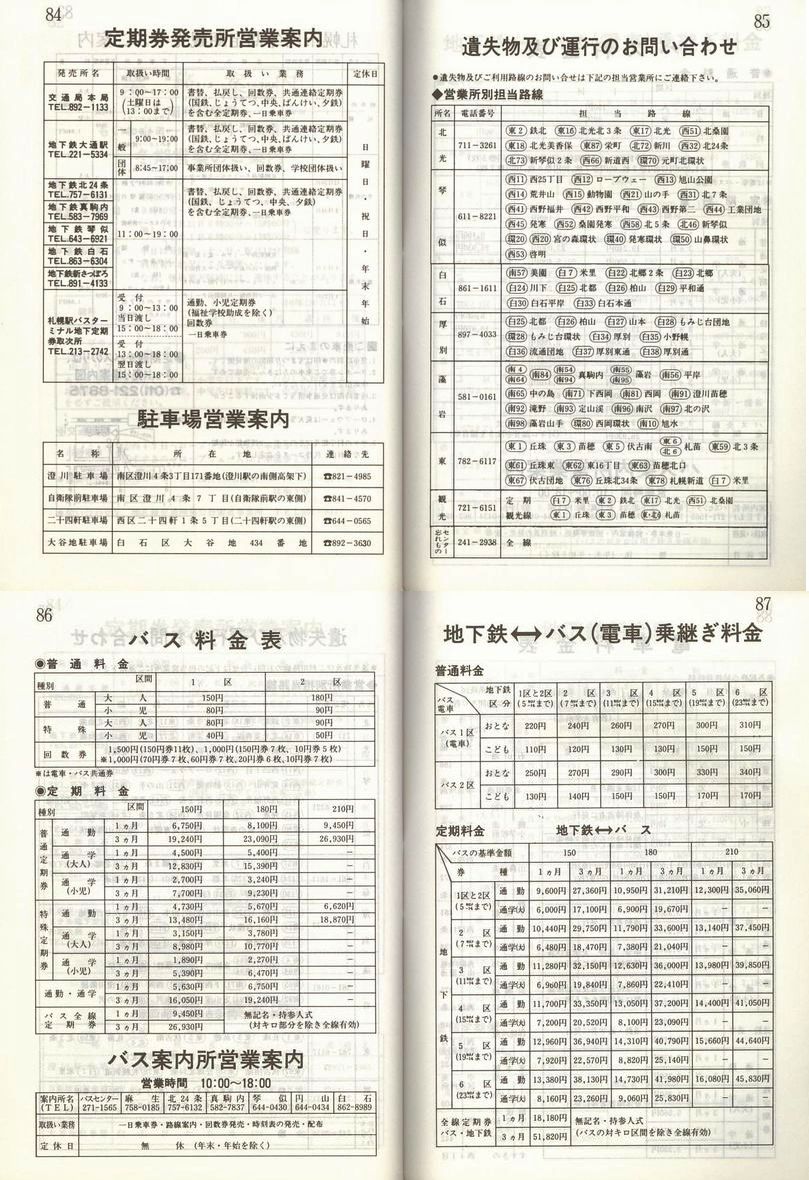 84
定期券発売所営業案内
発売所名 取扱い時間 取扱い業務 定休日
交通局本局 TEL.892-1133 9:00〜17:00 (土曜日は13:00まで) 書替、払戻し、回数券、共通連絡定期券
(国鉄、じょうてつ、中央、ばんけい、夕鉄)
を含む全定期券、一日乗車券
地下鉄大通駅 TEL.221-5334 一般 9:00〜19:00 書替、払戻し、回数券、共通連絡定期券
(国鉄、じょうてつ、中央、ばんけい、夕鉄)
を含む全定期券、一日乗車券
団体 8:45〜17:00 事業所団体扱い、回数券、学校団体扱い
地下鉄北24条 TEL.757-6131
地下鉄真駒内 TEL.583-7969
地下鉄琴似 TEL.643-6921
地下鉄白石 TEL.863-6304
地下鉄新さっぽろ TEL.891-4133
11:00〜19:00
書替、払戻し、回数券、共通連絡定期券
(国鉄、じょうてつ、中央、夕鉄)
を含む全定期券、一日乗車券
札幌駅バスターミナル地下定期券取次所 TEL.213-2742
受付 9:00〜13:00
当日渡し 15:00〜18:00
受付 13:00〜18:00
翌日渡し 15:00〜18:00
通勤、小児定期券
(福祉学校助成を除く)
回数券
一日乗車券
日曜日・祝日・年末年始
駐車場営業案内
名称 所在地 連絡先
澄川駐車場 南区澄川4条3丁目171番地(澄川駅の南側高架下) ☎821-4985
自衛隊前駐車場 南区澄川4条7丁目(自衛隊前駅の東側) ☎841-4570
二十四軒駐車場 西区二十四軒1条5丁目(二十四軒駅の東側) ☎644-0565
大谷地駐車場 白石区大谷地434番地 ☎892-3630
85
遺失物及び運行のお問い合わせ
●遺失物及びご利用路線のお問い合せは下記の担当営業所にご連絡下さい。
◆営業所別担当路線
所名 電話番号 担当路線
北光 711-3261 東2 鉄北 東16 北光北3条 東17 北光 西51 北桑園
東18 北光美香保 東87 栄町 北72 新川 西32 北24条
北73 新琴似2条 西66 新道西 環70 元町北環状
琴似 611-8221 西11 西25丁目 西12 ロープウェー 西13 旭山公園
西14 荒井山 西15 動物園 西21 山の手 西31 北7条
西41 西野福井 西42 西野平和 西43 西野第二 西44 工業団地
西45 発寒 西52 桑園発寒 西58 北5条 北46 新琴似
環20 西20 宮の森環状 環40 発寒環状 環50 山鼻環状
西53 啓明
白石 861-1611 南57 美園 白7 米里 白22 北郷2条 白23 北郷
白24 川下 白25 北都 白26 柏山 白29 平和通
白30 白石平岸 白33 白石本通
厚別 897-4033 白25 北都 白26 柏山 白27 山本 白28 もみじ台団地
環28 もみじ台環状 白34 厚別 白35 小野幌
白36 流通団地 白37 厚別東通 白38 厚別通
藻岩 581-0161 南4 南64 南84 南54 南94 真駒内 南55 南95 藻岩 南56 平岸
南65 中の島 南71 下西岡 南81 西岡 南91 澄川苗穂
南92 滝野 南93 定山渓 南96 南沢 南97 北の沢
南98 藻岩山手 環80 西岡環状 南10 旭水
東 782-6117 東1 丘珠 東3 苗穂 東5 伏古南 東6 北6 札苗 東59 北3条
東61 丘珠東 東62 東16丁目 東63 苗穂北口
東67 伏古団地 東76 丘珠北34条 東78 札幌新道 白7 米里
観光 721-6151 定期 白7 米里 東2 鉄北 東17 北光 西51 北桑園
観光線 東1 丘珠 東3 苗穂 東・北6 札苗
忘れものセンター 241-2938 全線
86
バス料金表
◉普通料金
種別 区間 1区 2区
普通 大人 150円 180円
小児 80円 90円
特殊 大人 80円 90円
小児 40円 50円
回数券 1,500円(150円券11枚)、1,000円(150円券7枚、10円券5枚)
※1,000円(70円券7枚、60円券7枚、20円券6枚、10円券7枚)
※は電車・バス共通券
◉定期料金
種別 区間 150円 180円 210円
普通定期券 通勤 1ヵ月 6,750円 8,100円 9,450円
3ヵ月 19,240円 23,090円 26,930円
通学(大人) 1ヵ月 4,500円 5,400円 −
3ヵ月 12,830円 15,390円 −
通学(小児) 1ヵ月 2,700円 3,240円 −
3ヵ月 7,700円 9,230円 −
特殊定期券 通勤 1ヵ月 4,730円 5,670円 6,620円
3ヵ月 13,480円 16,160円 18,870円
通学(大人) 1ヵ月 3,150円 3,780円 −
3ヵ月 8,980円 10,770円 −
通学(小児) 1ヵ月 1,890円 2,270円 −
3ヵ月 5,390円 6,470円 −
通勤・通学 1ヵ月 5,630円 6,750円 −
3ヵ月 16,050円 19,240円 −
バス全線定期券 1ヵ月 9,450円 無記名・持参人式
3ヵ月 26,930円 (対キロ部分を除き全線有効)
バス案内所営業案内
営業時間 10:00〜18:00
案内所名(TEL) バスセンター 271-1565 麻生 758-0185 北24条 757-6132 真駒内 582-7837 琴似 644-0430 円山 644-0434 白石 862-8989
取扱い業務 一日乗車券・路線案内・回数券発売・時刻表の発売・配布
定休日 無休(年末・年始を除く)
87
地下鉄↔バス(電車)乗継ぎ料金
普通料金
バス電車 地下鉄区分 1区と2区(5㎞まで) 2区(7㎞まで) 3区(11㎞まで) 4区(15㎞まで) 5区(19㎞まで) 6区(23㎞まで)
バス1区(電車) おとな 220円 240円 260円 270円 300円 310円
こども 110円 120円 130円 130円 150円 150円
バス2区 おとな 250円 270円 290円 300円 330円 340円
こども 130円 140円 150円 150円 170円 170円
定期料金 地下鉄↔バス
バスの基準金額 150 180 210
券種 1ヵ月 3ヵ月 1ヵ月 3ヵ月 1ヵ月 3ヵ月
地下鉄
1区と2区(5㎞まで) 通勤 9,600円 27,360円 10,950円 31,210円 12,300円 35,060円
通学(大) 6,000円 17,100円 6,900円 19,670円 − −
2区(7㎞まで) 通勤 10,440円 29,750円 11,790円 33,600円 13,140円 37,450円
通学(大) 6,480円 18,470円 7,380円 21,040円 − −
3区(11㎞まで) 通勤 11,280円 32,150円 12,630円 36,000円 13,980円 39,850円
通学(大) 6,960円 19,840円 7,860円 22,410円 − −
4区(15㎞まで) 通勤 11,700円 33,350円 13,050円 37,200円 14,400円 41,050円
通学(大) 7,200円 20,520円 8,100円 23,090円 − −
5区(19㎞まで) 通勤 12,960円 36,940円 14,310円 40,790円 15,660円 44,640円
通学(大) 7,920円 22,570円 8,820円 25,140円 − −
6区(23㎞まで) 通勤 13,380円 38,130円 14,730円 41,980円 16,080円 45,830円
通学(大) 8,160円 23,260円 9,060円 25,830円 − −
全線定期券バス・地下鉄 1ヵ月 18,180円 無記名・持参人式
3ヵ月 51,820円 (バスの対キロ区間を除き全線有効)